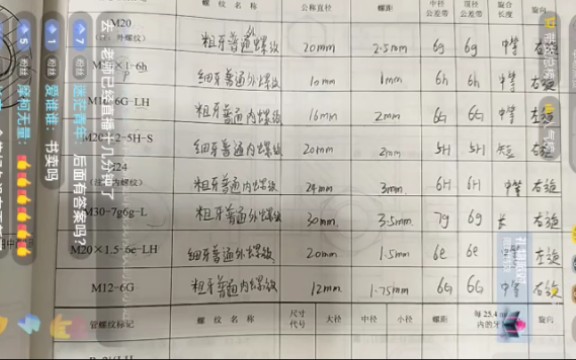 螺纹名称 公称直径 螺距 中径公差带 顶径公差带 旋合长度 旋向
M20（外螺纹） 粗牙普通外螺纹 20mm 2.5mm 6g 6g 中等 右旋
×1-6h 细牙普通外螺纹 10mm 1mm 6h 6h 中等 右旋
6G-LH 粗牙普通内螺纹 16mm 2mm 6G 6G 中等 左旋
2-5H-S 细牙普通内螺纹 20mm 2mm 5H 5H 短 右旋
24（内螺纹） 粗牙普通内螺纹 24mm 3mm 6H 6H 中等 右旋
M30-7g6g-L 粗牙普通外螺纹 30mm 3.5mm 7g 6g 长 右旋
M20×1.5-6e-LH 细牙普通外螺纹 20mm 1.5mm 6e 6e 中等 左旋
M12-6G 粗牙普通内螺纹 12mm 1.75mm 6G 6G 中等 右旋
管螺纹标记 螺纹名称 尺寸代号 大径 中径 小径 螺距 每25.4 内的牙 旋向
老师已经直播十八分钟了
7 粉丝 迷茫青年： 后面有答案吗？
1 粉丝 爱谁谁： 书卖吗
5 粉丝 空间无量：